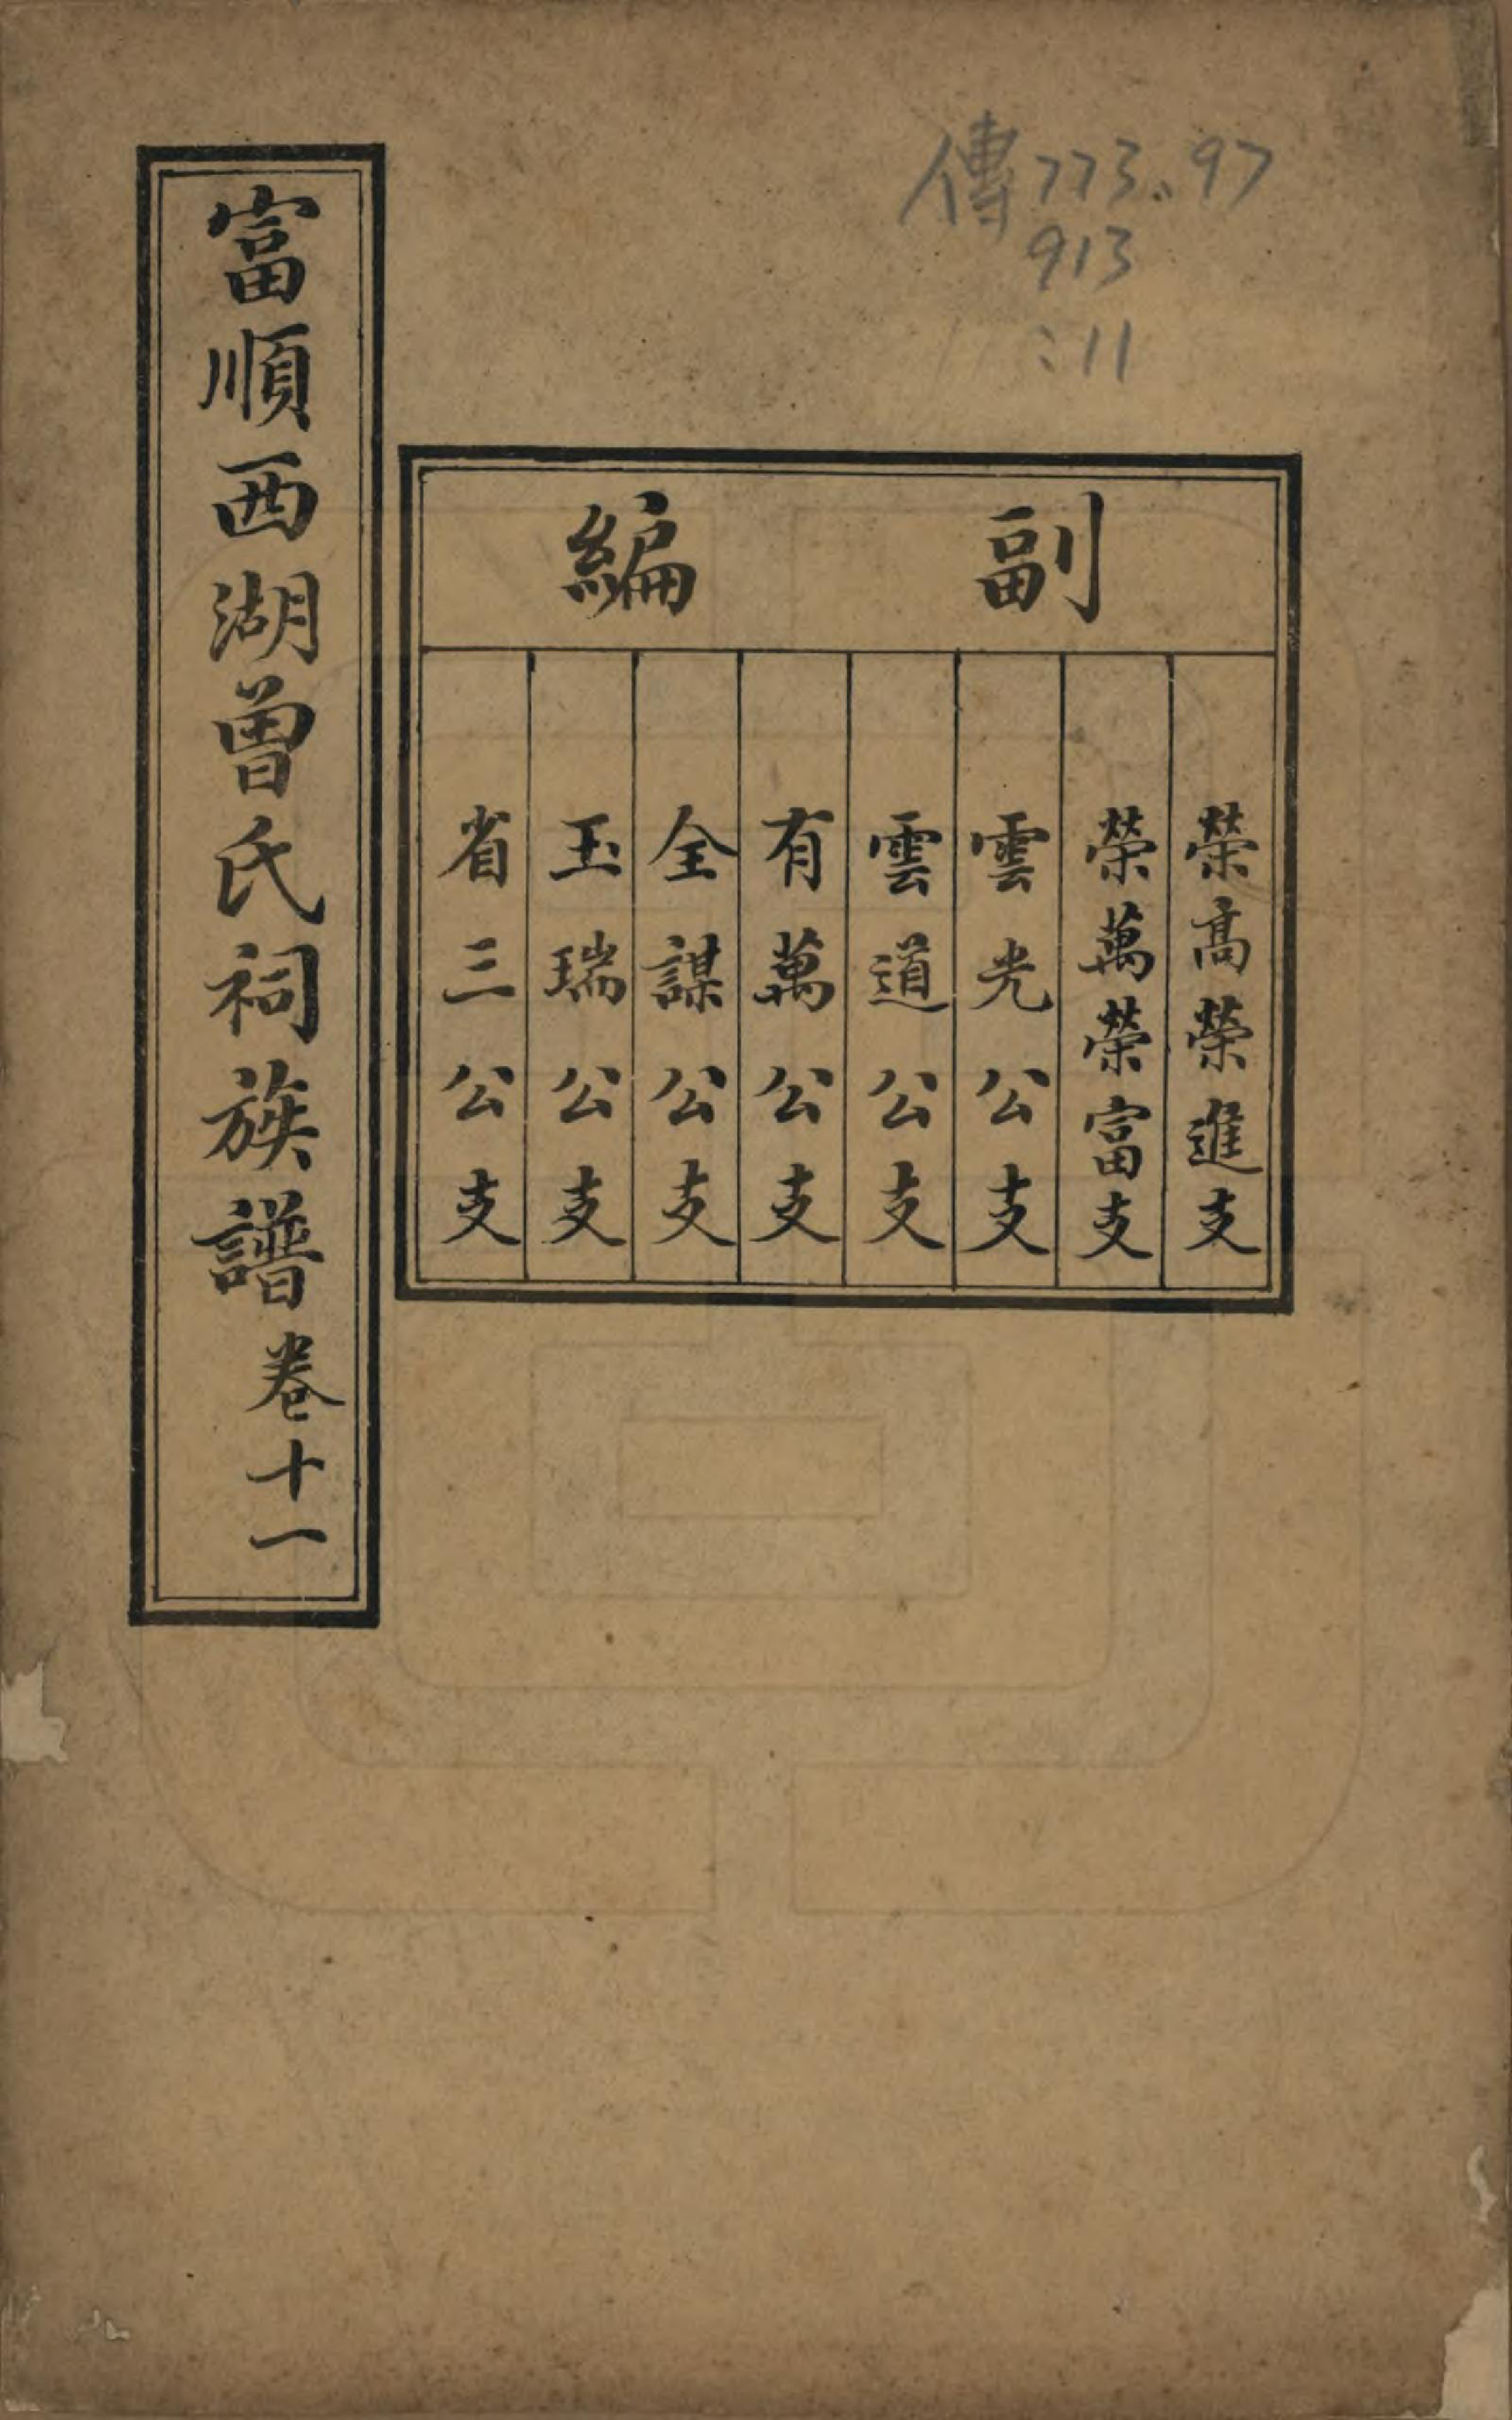 傳773.97
913
:11
副編
榮高榮進支
榮萬榮富支
雲光公支
雲道公支
有萬公支
全謀公支
玉瑞公支
省三公支
富順西湖曾氏祠族譜卷十一